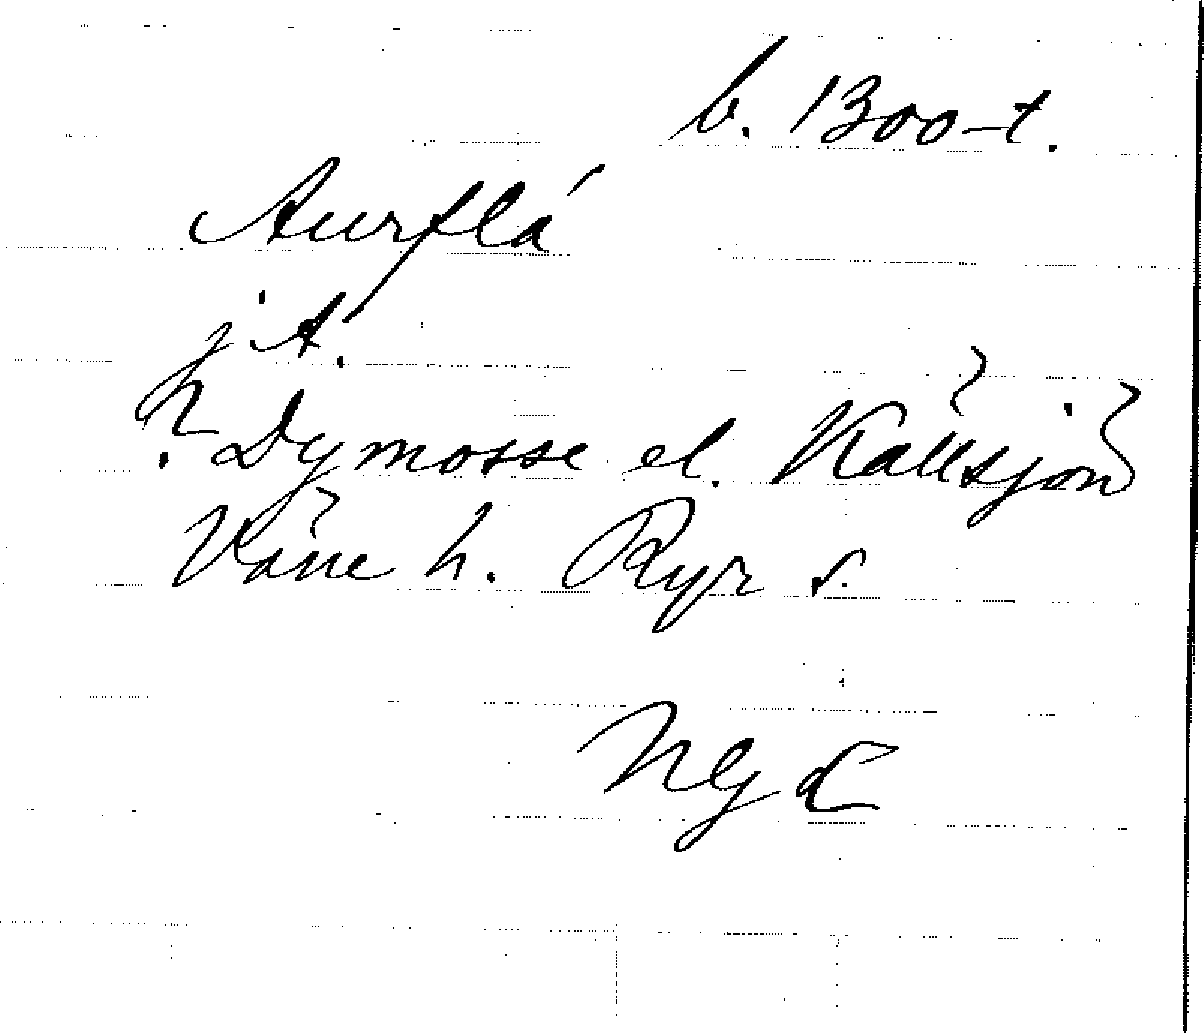 b. 1300-t.
Aurflá
j. A.
? Dymosse el. Källsjön
Väne h. Ryr s.